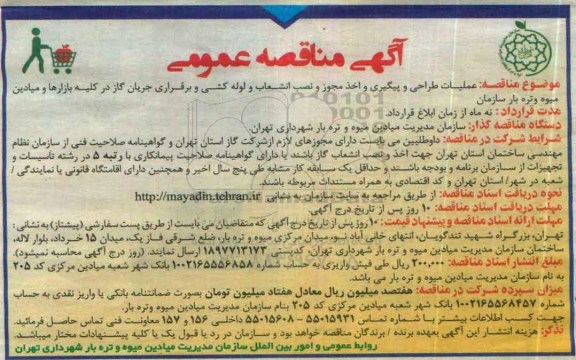 آگهی مناقصه عمومی
موضوع مناقصه: عملیات طراحی و پیگیری و اخذ مجوز و نصب انشعاب و لوله کشی و برقراری جریان گاز در کلیه بازارها و میادین
میوه وتره بار سازمان
مدت قرارداد: نه ماه از زمان ابلاغ قرارداد.
دستگاه مناقصه گذار: سازمان مدیریت میادین میوه و تره بار شهرداری تهران.
شرایط شرکت در مناقصه: داوطلبین می بایست دارای مجوزهای لازم ازشرکت گاز استان تهران و گواهینامه صلاحیت فنی از سازمان نظام
مهندسی ساختمان استان تهران جهت اخذ و نصب انشعاب گاز باشند یا دارای گواهینامه صلاحیت پیمانکاری با رتبه ۵ در رشته تأسیسات و
تجهیزات از سازمان برنامه و بودجه باشند و حداقل یک سابقه کار مشابه طی پنج سال اخیر و همچنین دارای اقامتگاه قانونی یا نمایندگی /
شعبه در شهر/ استان تهران و کد اقتصادی به همراه مستندات مربوطه باشند.
نحوه دریافت اسناد مناقصه: از طریق مراجعه به سایت سازمان به نشانی http://mayadin.tehran.ir
مهلت دریافت اسناد مناقصه: ۱۰ روز پس از تاریخ درج آگهی.
مهلت ارائه اسناد مناقصه و پیشنهاد قیمت: ۱۰ روز پس از تاریخ درج آگهی که متقاضیان می بایست از طریق پست سفارشی (پیشتاز) به نشانی:
تهران، بزرگراه شهید تندگویان، انتهای خانی آباد نو، میدان مرکزی میوه و تره بار، ضلع شرقی فاز یک، میدان ۱۵ خرداد، بلوار لاله،
ساختمان سازمان مدیریت میادین میوه و تره بار شهرداری تهران، کدپستی ۱۸۹۷۷۱۳۱۷۳ ارسال نمایند. (روز درج آگهی محاسبه نمیشود)
مبلغ انتشار اسناد مناقصه: ۲۰۰٫۰۰۰ ریال طی فیش واریزی به حساب شماره ۱۰۰۲۱۶۵۵۵۶۸۵۸ بانک شهر شعبه میادین مرکزی کد ۲۰۵
به نام سازمان مدیریت میادین میوه و تره بار می باشد.
میزان سپرده شرکت در مناقصه: هفتصد میلیون ریال معادل هفتاد میلیون تومان بصورت ضمانتنامه بانکی یا واریز نقدی به حساب
شماره ۱۰۰۲۱۶۵۵۶۸۴۵۷ بانک شهر شعبه میادین مرکزی کد ۲۰۵ بنام سازمان مدیریت میادین میوه وتره بار.
جهت کسب اطلاعات بیشتر با شماره تماس ۵۵۰۱۵۹۳۱ - ۵۵۰۱۵۶۰۸ داخلی ۱۵۶ و ۱۵۷ معاونت فنی تماس حاصل فرمائید.
تذکر: هزینه انتشار این آگهی بعهده برنده / برندگان مناقصه خواهد بود و سازمان در رد یا قبول یک یا کلیه پیشنهادات مختار میباشد.
روابط عمومی و امور بین الملل سازمان مدیریت میادین میوه و تره بار شهرداری تهران